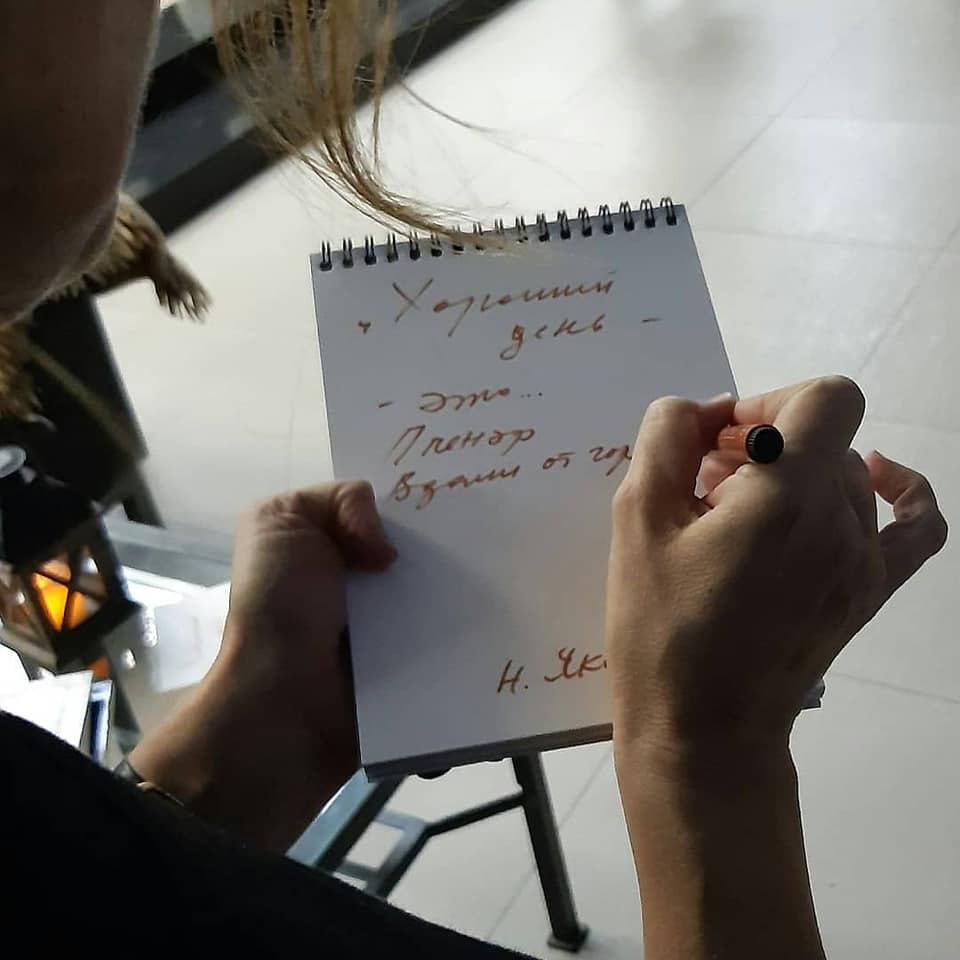 „Хороший
день –
- это...
Пленэр
Вдали от гор
Н. Як